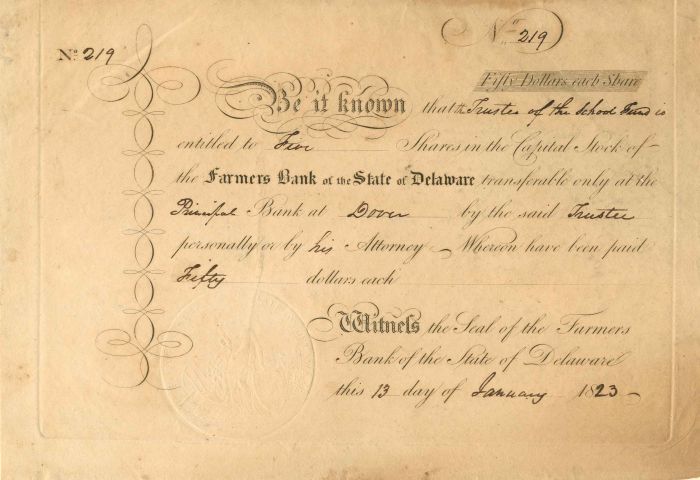 No. 219
No. 219
Fifty Dollars each Share
Be it known that the Trustee of the School Fund is
entitled to Five Shares in the Capital Stock of
the Farmers Bank of the State of Delaware transferable only at the
Principal Bank at Dover by the said Trustee
personally or by his Attorney Whereon have been paid
Fifty dollars each
Witness the Seal of the Farmers
Bank of the State of Delaware
this 13 day of January 1823